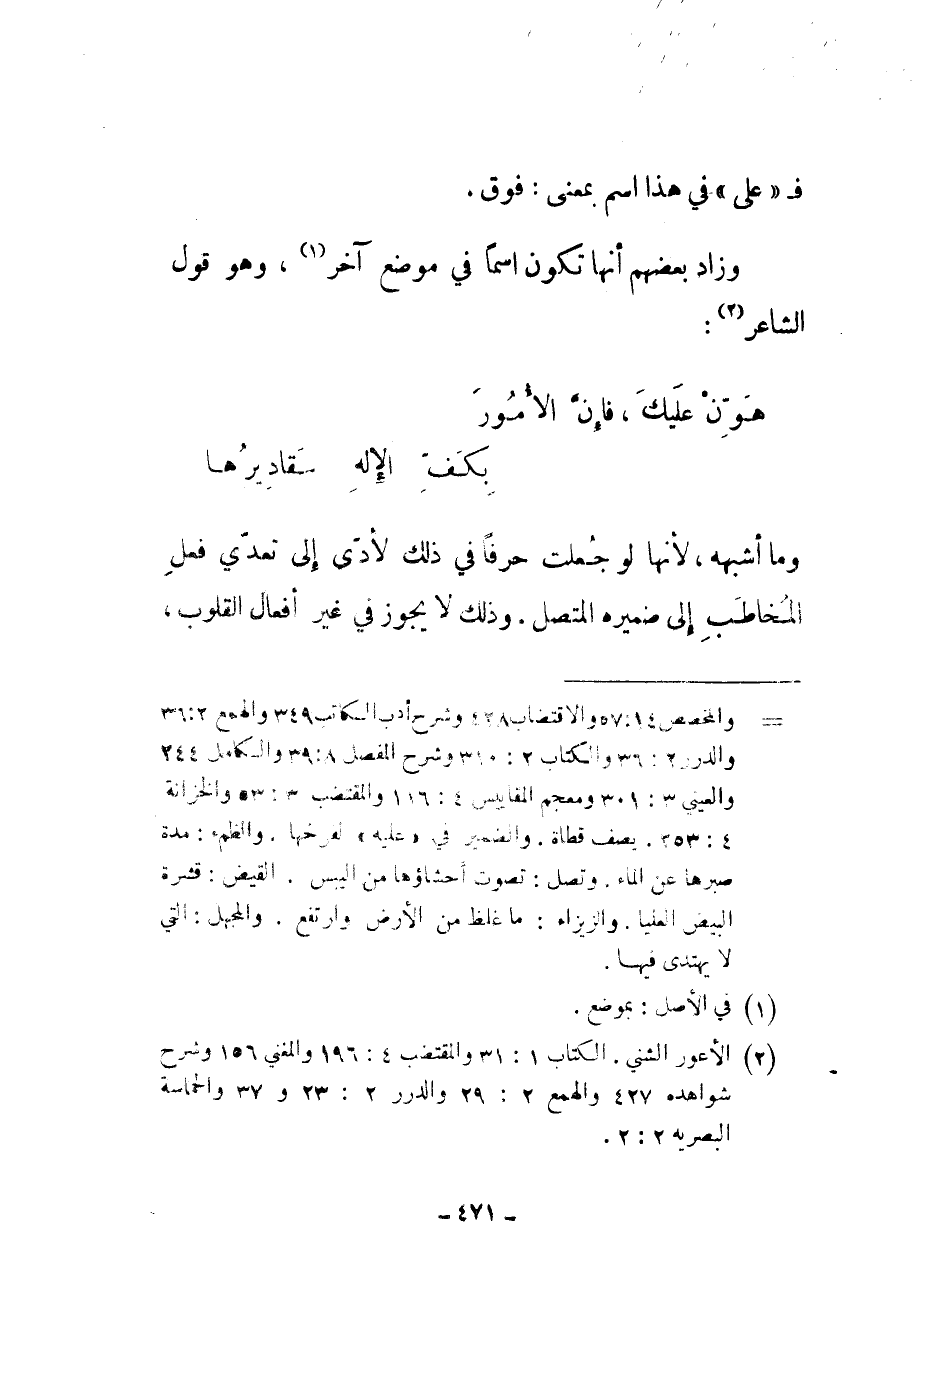 فـ « على » في هذا اسم بمعنى : فوق .
وزاد بعضهم أنها تكون اسماً في موضع آخر (١) ، وهو قول
الشاعر (٢) :
هَوِّنْ عليكَ ، فإِنَّ الأُمُورَ
بِكَفِّ الإِلهِ مَقادِيرُها
وما أشبهه ، لأنها لو جُعلت حرفاً في ذلك لأدّى إلى تعدّي فعلِ
المُخاطَبِ إلى ضميره المتصل . وذلك لا يجوز في غير أفعال القلوب ،
= والمخصص ١٤ : ٥٧ والاقتضاب ٤٢٨ وشرح أدب الكاتب ٣٤٩ والهمع ٢ : ٣٦
والدرر ٢ : ٣٦ والكتاب ٢ : ٣١٠ وشرح المفصل ٨ : ٣٩ والكامل ٢٤٤
والعيني ٣ : ٣٠١ ومعجم المقاييس ٤ : ١١٦ والمقتضب ٣ : ٥٣ والخزانة
٤ : ٢٥٣ . يصف قطاة . والضمير في « عليه » لفرخها . والظمء : مدة
صبرها عن الماء . وتصل : تصوت أحشاؤها من اليبس . القيض : قشرة
البيض العليا . والزيزاء : ما غلظ من الأرض وارتفع . والمجهل : التي
لا يهتدى فيها .
(١) في الأصل : بموضع .
(٢) الأعور الشني . الكتاب ١ : ٣١ والمقتضب ٤ : ١٩٦ والمغني ١٥٦ وشرح
شواهده ٤٢٧ والهمع ٢ : ٢٩ والدرر ٢ : ٢٣ و ٣٧ والحماسة
البصرية ٢ : ٢ .
- ٤٧١ -